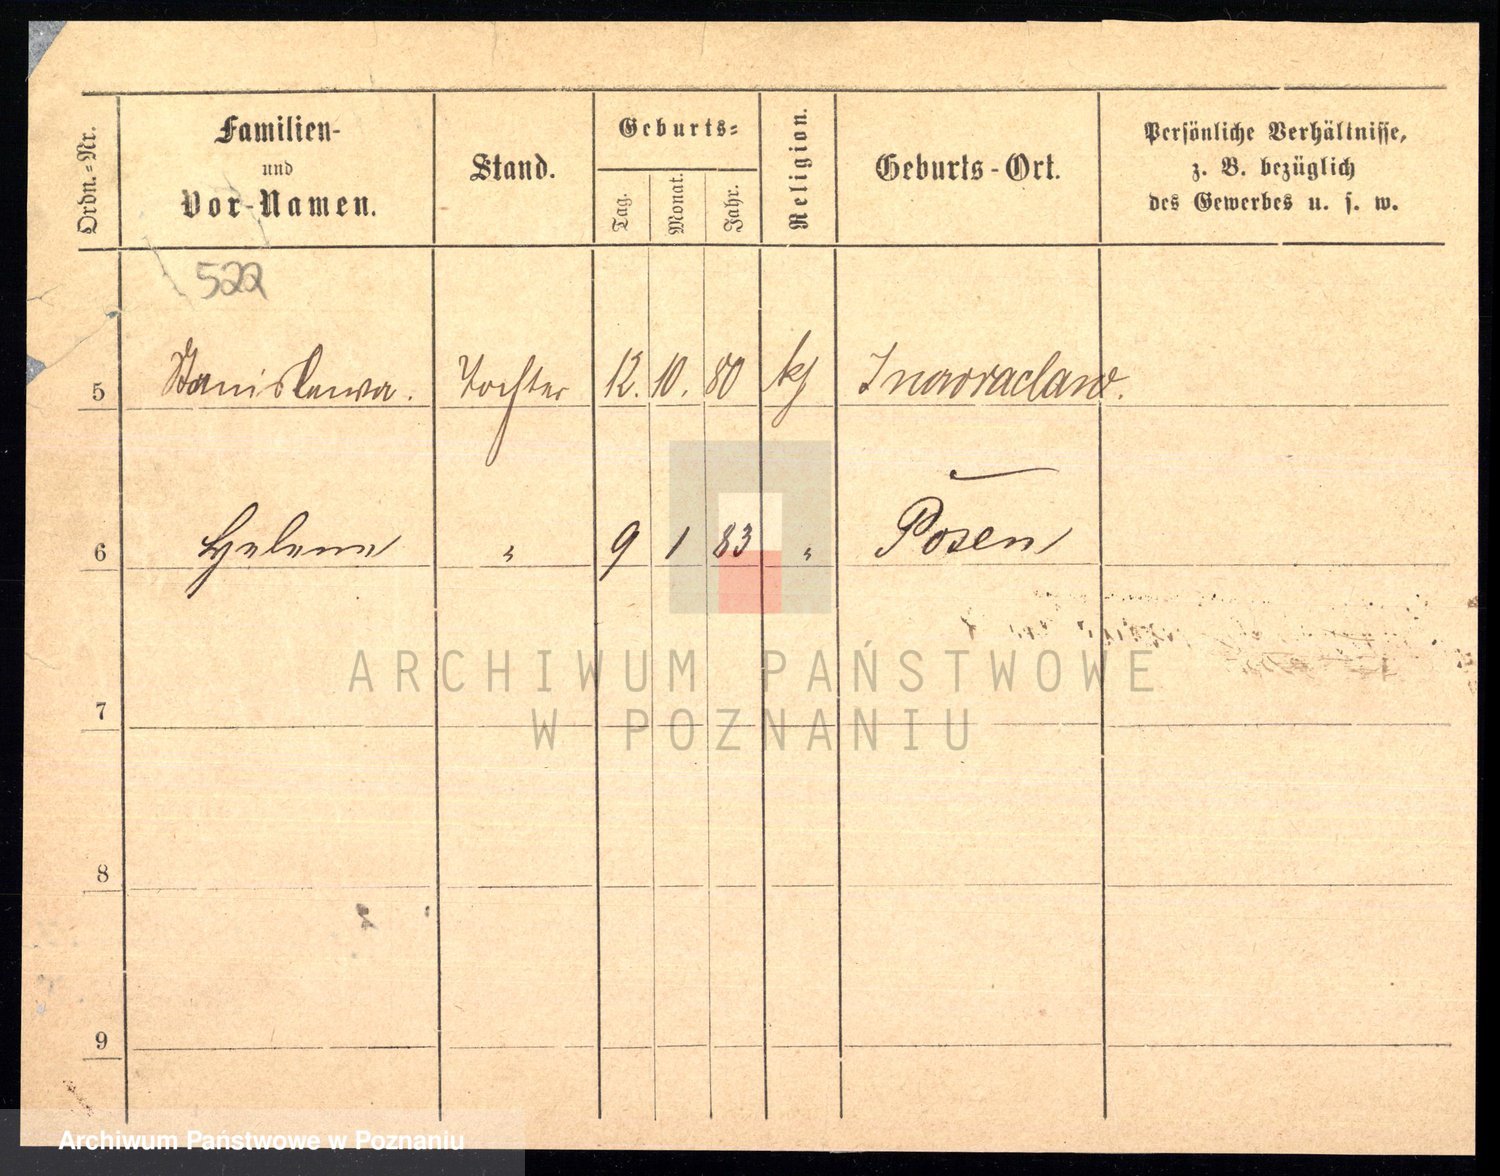 Ordn.-Nr.
Familien-
und
Vor-Namen.
Stand.
Geburts-
Tag.
Monat.
Jahr.
Religion.
Geburts-Ort.
Persönliche Verhältnisse,
z. B. bezüglich
des Gewerbes u. s. w.
522
5 Stanislawa. Tochter 12. 10. 80 kf Inowraclaw.
6 Helene " 9 1 83 " Posen
ARCHIWUM PAŃSTWOWE
W POZNANIU
7
8
9
Archiwum Państwowe w Poznaniu